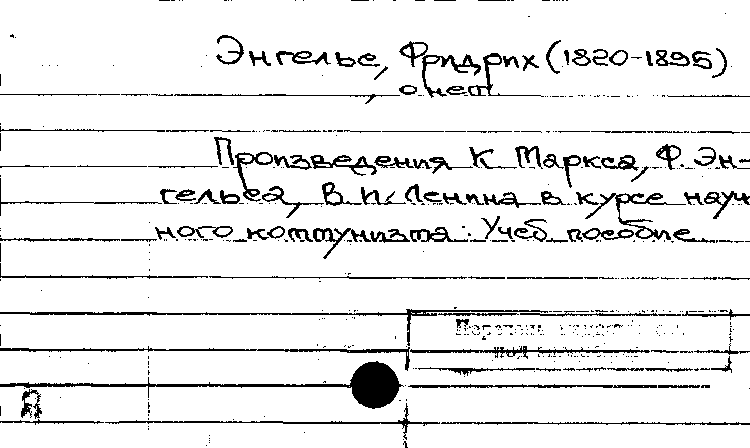 Энгельс, Фридрих (1820-1895)
, о нем.
Произведения К. Маркса, Ф. Эн-
гельса, В. И. Ленина в курсе науч
ного коммунизма: Учеб. пособие
Перечень
под